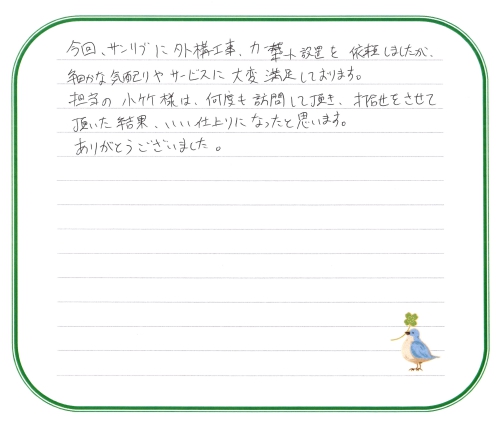 今回、サンリブに外構工事、カーポート設置を依頼しましたが、
細かな気配りやサービスに大変満足しております。
担当の小竹様は、何度も訪問して頂き、打合せをさせて
頂いた結果、いい仕上りになったと思います。
ありがとうございました。